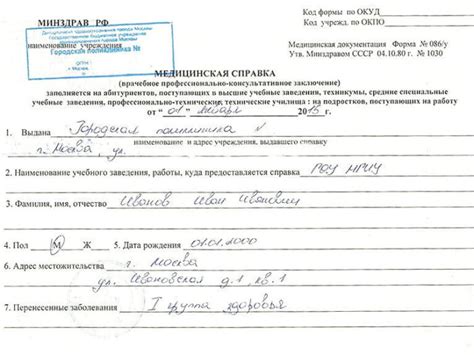 Код формы по ОКУД
Код учрежд. по ОКПО
МИНЗДРАВ РФ
Департамент здравоохранения города Москвы
Государственное бюджетное учреждение
здравоохранения города Москвы
Городская поликлиника №
г. Москва,
наименование учреждения
Медицинская документация Форма № 086/у
Утв. Минздравом СССР 04.10.80 г. № 1030
МЕДИЦИНСКАЯ СПРАВКА
(врачебное профессионально-консультативное заключение)
заполняется на абитуриентов, поступающих в высшие учебные заведения, техникумы, средние специальные
учебные заведения, профессионально-технические, технические училища : на подростков, поступающих на работу
от “ 01 ” января 2015 г.
1. Выдана Городская поликлиника №
наименование и адрес учреждения, выдавшего справку
г. Москва, ул.
2. Наименование учебного заведения, работы, куда предоставляется справка РОУ МРИУ
3. Фамилия, имя, отчество Иванов Иван Иванович
4. Пол М Ж 5. Дата рождения 01.01.2000
6. Адрес местожительства г. Москва
ул. Ивановская д.1, кв.1
7. Перенесенные заболевания I группа здоровья